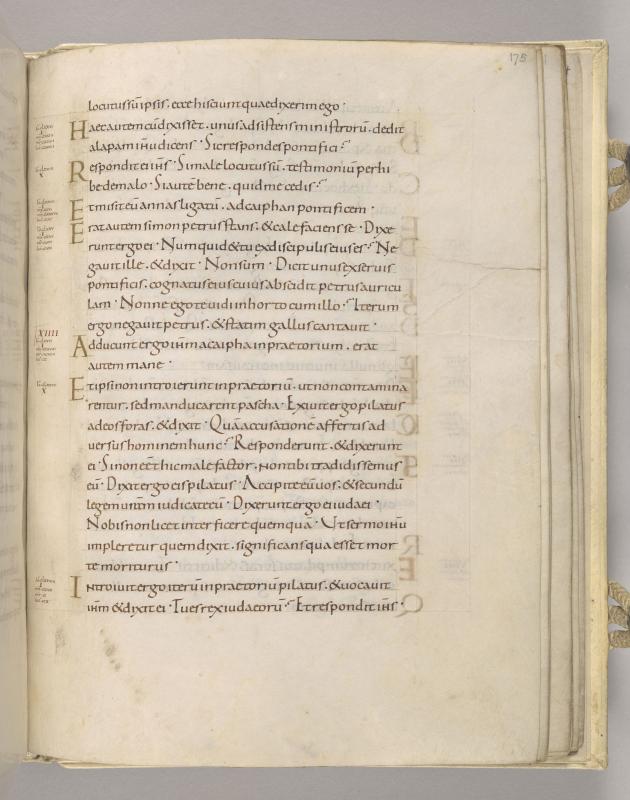 175
locutus sū ipsis. ecce hi sciunt quae dixerim ego·
Haec autem cū dixisset. unus adsistens ministrorū. dedit
alapam ihu dicens· Sic respondes pontifici·
Respondit ei ihs· Si male locutus sū. testimoniū perhi
be de malo· Si autē bene. quid me cedis·
Et misit eū annas ligatū. ad caiphan pontificem·
Erat autem simon petrus stans. & calefaciens se· Dixe
runt ergo ei· Numquid & tu ex discipulis eius es· Ne
gauit ille. & dixit· Non sum· Dicit unus ex seruis
pontificis. cognatus eius cuius abscidit petrus auricu
lam· Nonne ego te uidi in horto cum illo· Iterum
ergo negauit petrus. & statim gallus cantauit·
XIIII
Adducunt ergo ihm a caipha in praetorium. erat
autem mane·
Et ipsi non introierunt in praetoriū. ut non contamina
rentur. sed manducarent pascha· Exiuit ergo pilatus
ad eos foras. & dixit· Quā accusationē affertis ad
uersus hominem hunc· Responderunt. & dixerunt
ei· Si non eēt hic malefactor. non tibi tradidissemus
eū· Dixit ergo eis pilatus· Accipite eū uos. & secundū
legem urām iudicate eū· Dixerunt ergo ei iudaei·
Nobis non licet interficere quemquā· Ut sermo ihu
impleretur quem dixit. significans qua esset mor
te moriturus·
Introiuit ergo iterū in praetoriū pilatus. & uocauit
ihm & dixit ei· Tu es rex iudaeorū· Et respondit ihs·